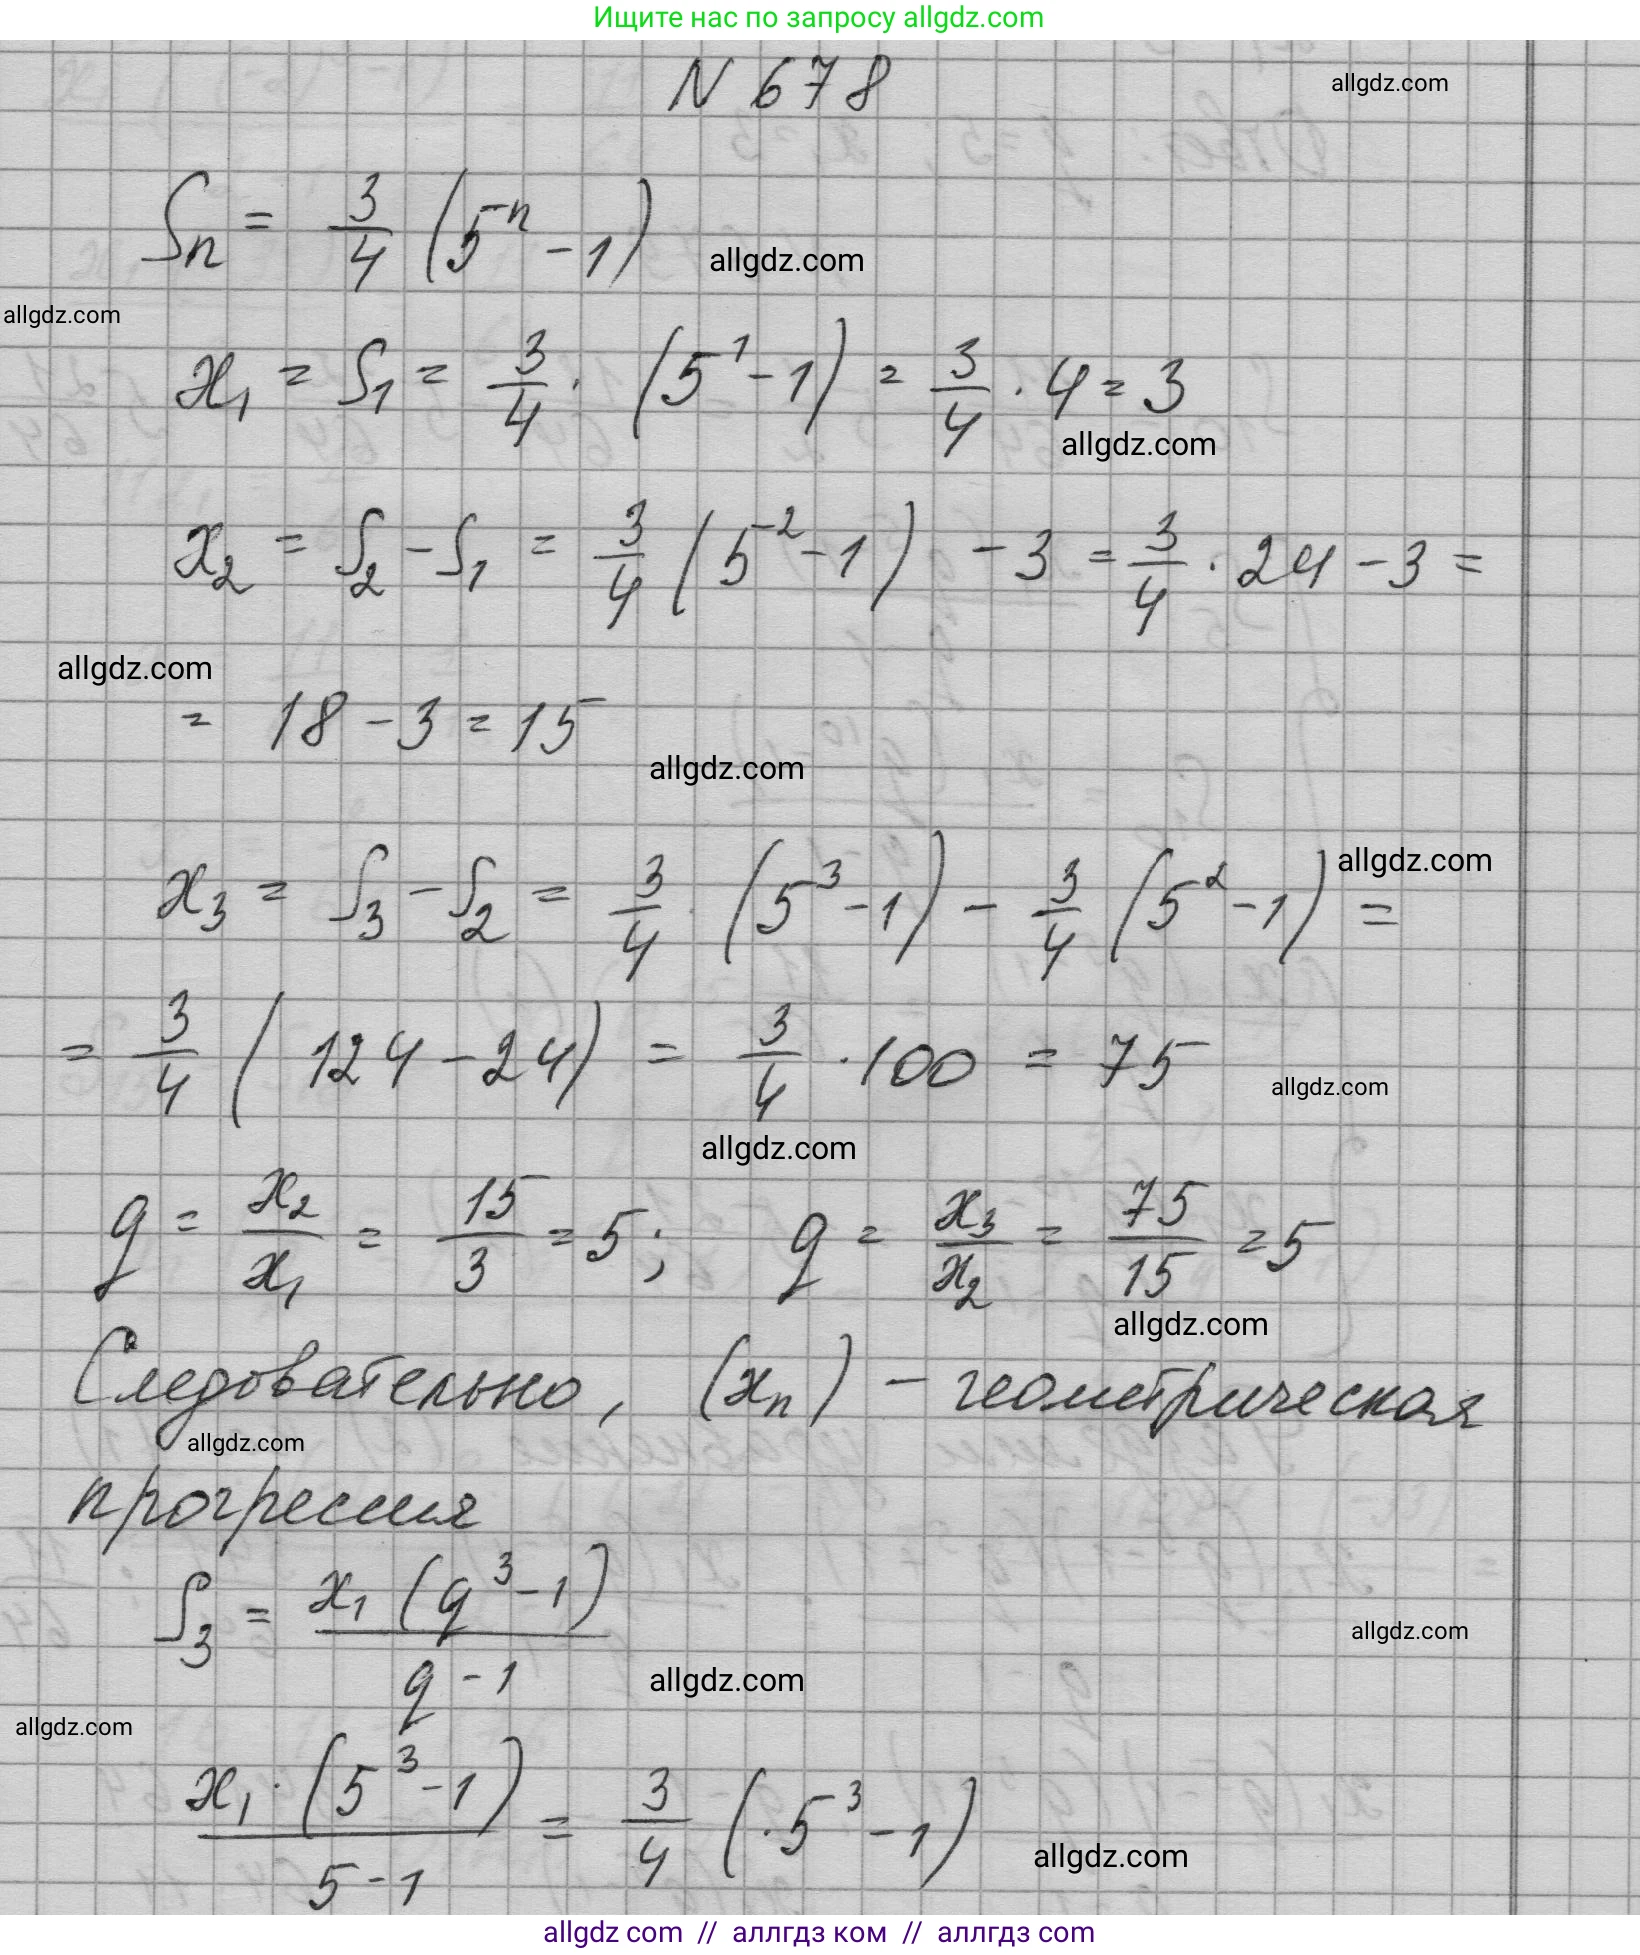 Ищите нас по запросу allgdz.com
N 678
allgdz.com
Sn = 3/4 (5^n - 1)
allgdz.com
allgdz.com
x₁ = S₁ = 3/4 · (5^1 - 1) = 3/4 · 4 = 3
allgdz.com
x₂ = S₂ - S₁ = 3/4 (5^2 - 1) - 3 = 3/4 · 24 - 3 =
allgdz.com
= 18 - 3 = 15
allgdz.com
x₃ = S₃ - S₂ = 3/4 · (5^3 - 1) - 3/4 (5^2 - 1) =
allgdz.com
= 3/4 (124 - 24) = 3/4 · 100 = 75
allgdz.com
allgdz.com
q = x₂/x₁ = 15/3 = 5; q = x₃/x₂ = 75/15 = 5
allgdz.com
Следовательно, (xn) - геометрическая
allgdz.com
прогрессия
S₃ = x₁ (q^3 - 1) / q - 1
allgdz.com
allgdz.com
allgdz.com
x₁ · (5^3 - 1) / 5 - 1 = 3/4 (· 5^3 - 1)
allgdz.com
allgdz com // аллгдз ком // аллгдз com